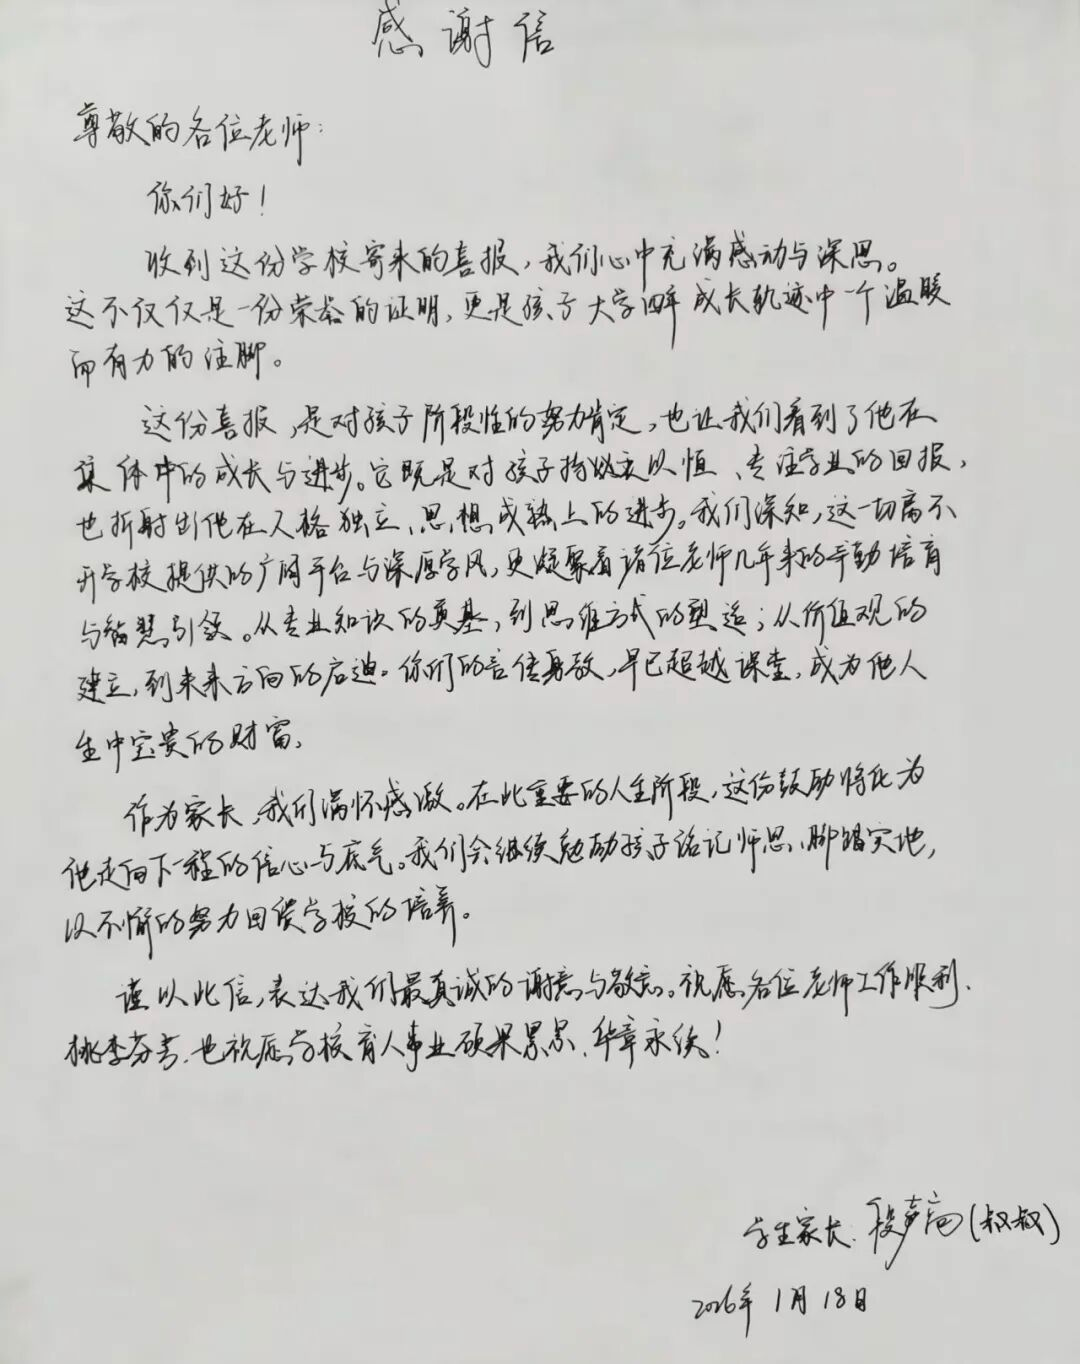 感谢信
尊敬的各位老师：
你们好！
收到这份学校寄来的喜报，我们心中充满感动与深思。
这不仅仅是一份荣誉的证明，更是孩子大学四年成长轨迹中一个温暖
而有力的注脚。
这份喜报，是对孩子阶段性的努力肯定，也让我们看到了他在
集体中的成长与进步。它既是对孩子持以恒、专注学业的回报，
也折射出他在人格独立、思想成熟上的进步。我们深知，这一切离不
开学校提供的广阔平台与深厚学风，更凝聚着诸位老师几年来的辛勤培育
与智慧引领。从专业知识的奠基，到思维方式的塑造；从价值观的
建立，到未来方向的启迪。你们的言传身教，早已超越课堂，成为他人
生中宝贵的财富，
作为家长，我们满怀感激。在此重要的人生阶段，这份鼓励将化为
他走向下一程的信心与底气。我们会继续勉励孩子铭记师恩、脚踏实地，
以不懈的努力回馈学校的培养。
谨以此信，表达我们最真诚的谢意与敬意。祝愿各位老师工作顺利、
桃李芬芳，也祝愿学校育人事业硕果累累、华章永续！
学生家长：段声(叔叔)
2026年1月18日